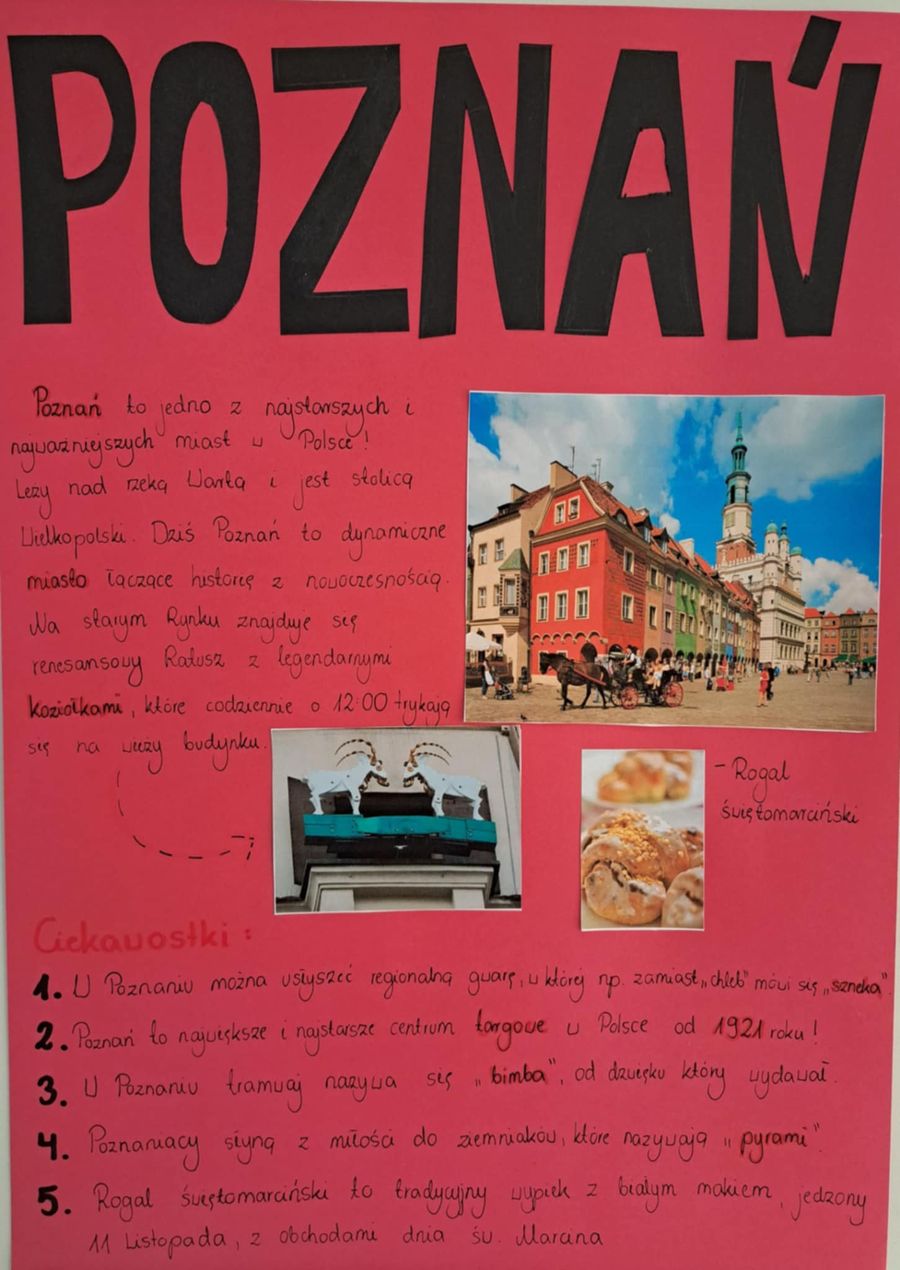 POZNAŃ
Poznań to jedno z najstarszych i
najważniejszych miast w Polsce!
Leży nad rzeką Wartą i jest stolicą
Wielkopolski. Dziś Poznań to dynamiczne
miasto łączące historię z nowoczesnością.
Na starym Rynku znajduje się
renesansowy Ratusz z legendarnymi
koziołkami, które codziennie o 12:00 trykają
się na wieży budynku.
- Rogal
świętomarciński
Ciekawostki:
1. W Poznaniu można usłyszeć regionalną gwarę, w której np. zamiast „chleb" mówi się „szneka".
2. Poznań to największe i najstarsze centrum targowe w Polsce od 1921 roku!
3. W Poznaniu tramwaj nazywa się „bimba", od dźwięku który wydawał.
4. Poznaniacy słyną z miłości do ziemniaków, które nazywają „pyrami"
5. Rogal świętomarciński to tradycyjny wypiek z białym makiem, jedzony
11 Listopada, z obchodami dnia św. Marcina